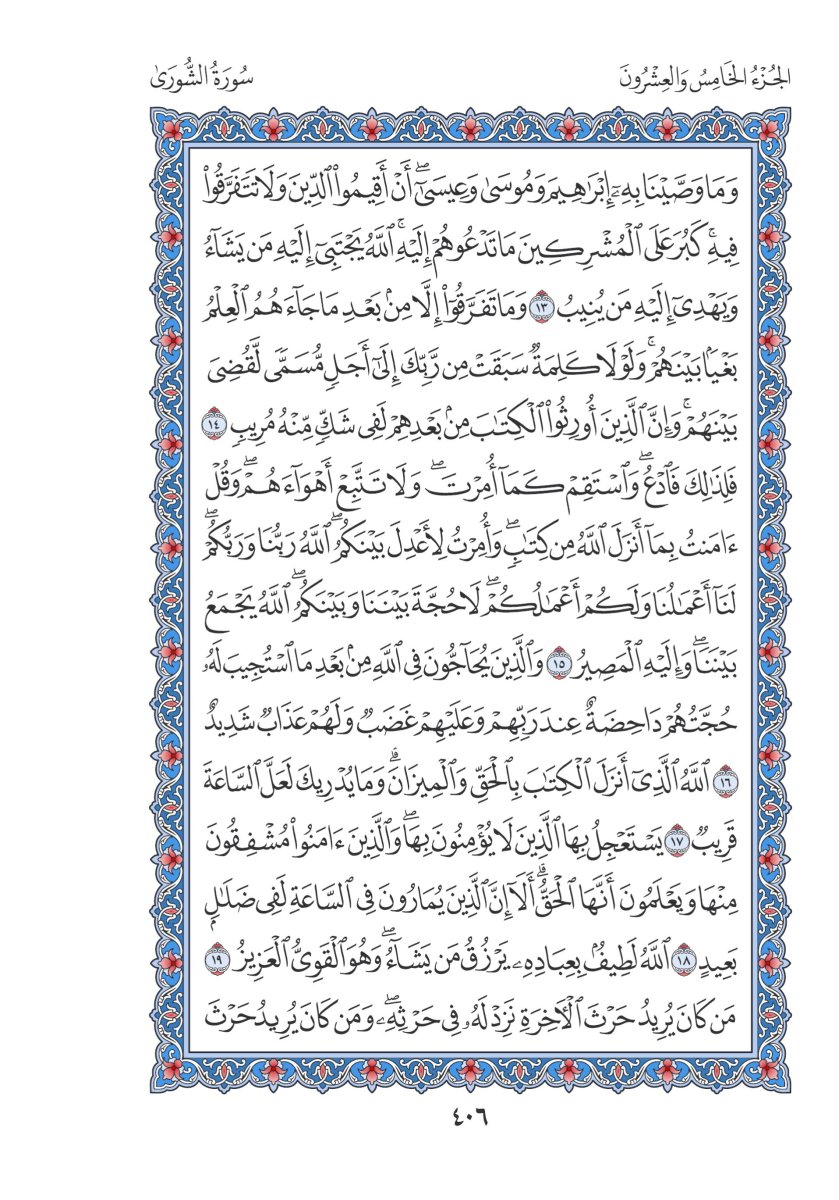 الجُزْءُ الخَامِسُ وَالعِشْرُونَ
سُورَةُ الشُّورَىٰ
وَمَا وَصَّيْنَا بِهِۦٓ إِبْرَٰهِيمَ وَمُوسَىٰ وَعِيسَىٰٓۖ أَنْ أَقِيمُوا۟ ٱلدِّينَ وَلَا تَتَفَرَّقُوا۟
فِيهِۚ كَبُرَ عَلَى ٱلْمُشْرِكِينَ مَا تَدْعُوهُمْ إِلَيْهِۚ ٱللَّهُ يَجْتَبِىٓ إِلَيْهِ مَن يَشَآءُ
وَيَهْدِىٓ إِلَيْهِ مَن يُنِيبُ ١٣ وَمَا تَفَرَّقُوٓا۟ إِلَّا مِنۢ بَعْدِ مَا جَآءَهُمُ ٱلْعِلْمُ
بَغْيًۢا بَيْنَهُمْۚ وَلَوْلَا كَلِمَةٌ سَبَقَتْ مِن رَّبِّكَ إِلَىٰٓ أَجَلٍ مُّسَمًّى لَّقُضِىَ
بَيْنَهُمْۚ وَإِنَّ ٱلَّذِينَ أُورِثُوا۟ ٱلْكِتَٰبَ مِنۢ بَعْدِهِمْ لَفِى شَكٍّ مِّنْهُ مُرِيبٍ ١٤
فَلِذَٰلِكَ فَٱدْعُۖ وَٱسْتَقِمْ كَمَآ أُمِرْتَۖ وَلَا تَتَّبِعْ أَهْوَآءَهُمْۖ وَقُلْ
ءَامَنتُ بِمَآ أَنزَلَ ٱللَّهُ مِن كِتَٰبٍۖ وَأُمِرْتُ لِأَعْدِلَ بَيْنَكُمُۖ ٱللَّهُ رَبُّنَا وَرَبُّكُمْۖ
لَنَآ أَعْمَٰلُنَا وَلَكُمْ أَعْمَٰلُكُمْۖ لَا حُجَّةَ بَيْنَنَا وَبَيْنَكُمُۖ ٱللَّهُ يَجْمَعُ
بَيْنَنَاۖ وَإِلَيْهِ ٱلْمَصِيرُ ١٥ وَٱلَّذِينَ يُحَآجُّونَ فِى ٱللَّهِ مِنۢ بَعْدِ مَا ٱسْتُجِيبَ لَهُۥ
حُجَّتُهُمْ دَاحِضَةٌ عِندَ رَبِّهِمْ وَعَلَيْهِمْ غَضَبٌ وَلَهُمْ عَذَابٌ شَدِيدٌ
١٦ ٱللَّهُ ٱلَّذِىٓ أَنزَلَ ٱلْكِتَٰبَ بِٱلْحَقِّ وَٱلْمِيزَانَۗ وَمَا يُدْرِيكَ لَعَلَّ ٱلسَّاعَةَ
قَرِيبٌ ١٧ يَسْتَعْجِلُ بِهَا ٱلَّذِينَ لَا يُؤْمِنُونَ بِهَاۖ وَٱلَّذِينَ ءَامَنُوا۟ مُشْفِقُونَ
مِنْهَا وَيَعْلَمُونَ أَنَّهَا ٱلْحَقُّۗ أَلَآ إِنَّ ٱلَّذِينَ يُمَارُونَ فِى ٱلسَّاعَةِ لَفِى ضَلَٰلٍۭ
بَعِيدٍ ١٨ ٱللَّهُ لَطِيفٌۢ بِعِبَادِهِۦ يَرْزُقُ مَن يَشَآءُۖ وَهُوَ ٱلْقَوِىُّ ٱلْعَزِيزُ ١٩
مَن كَانَ يُرِيدُ حَرْثَ ٱلْءَاخِرَةِ نَزِدْ لَهُۥ فِى حَرْثِهِۦۖ وَمَن كَانَ يُرِيدُ حَرْثَ
٤٠٦